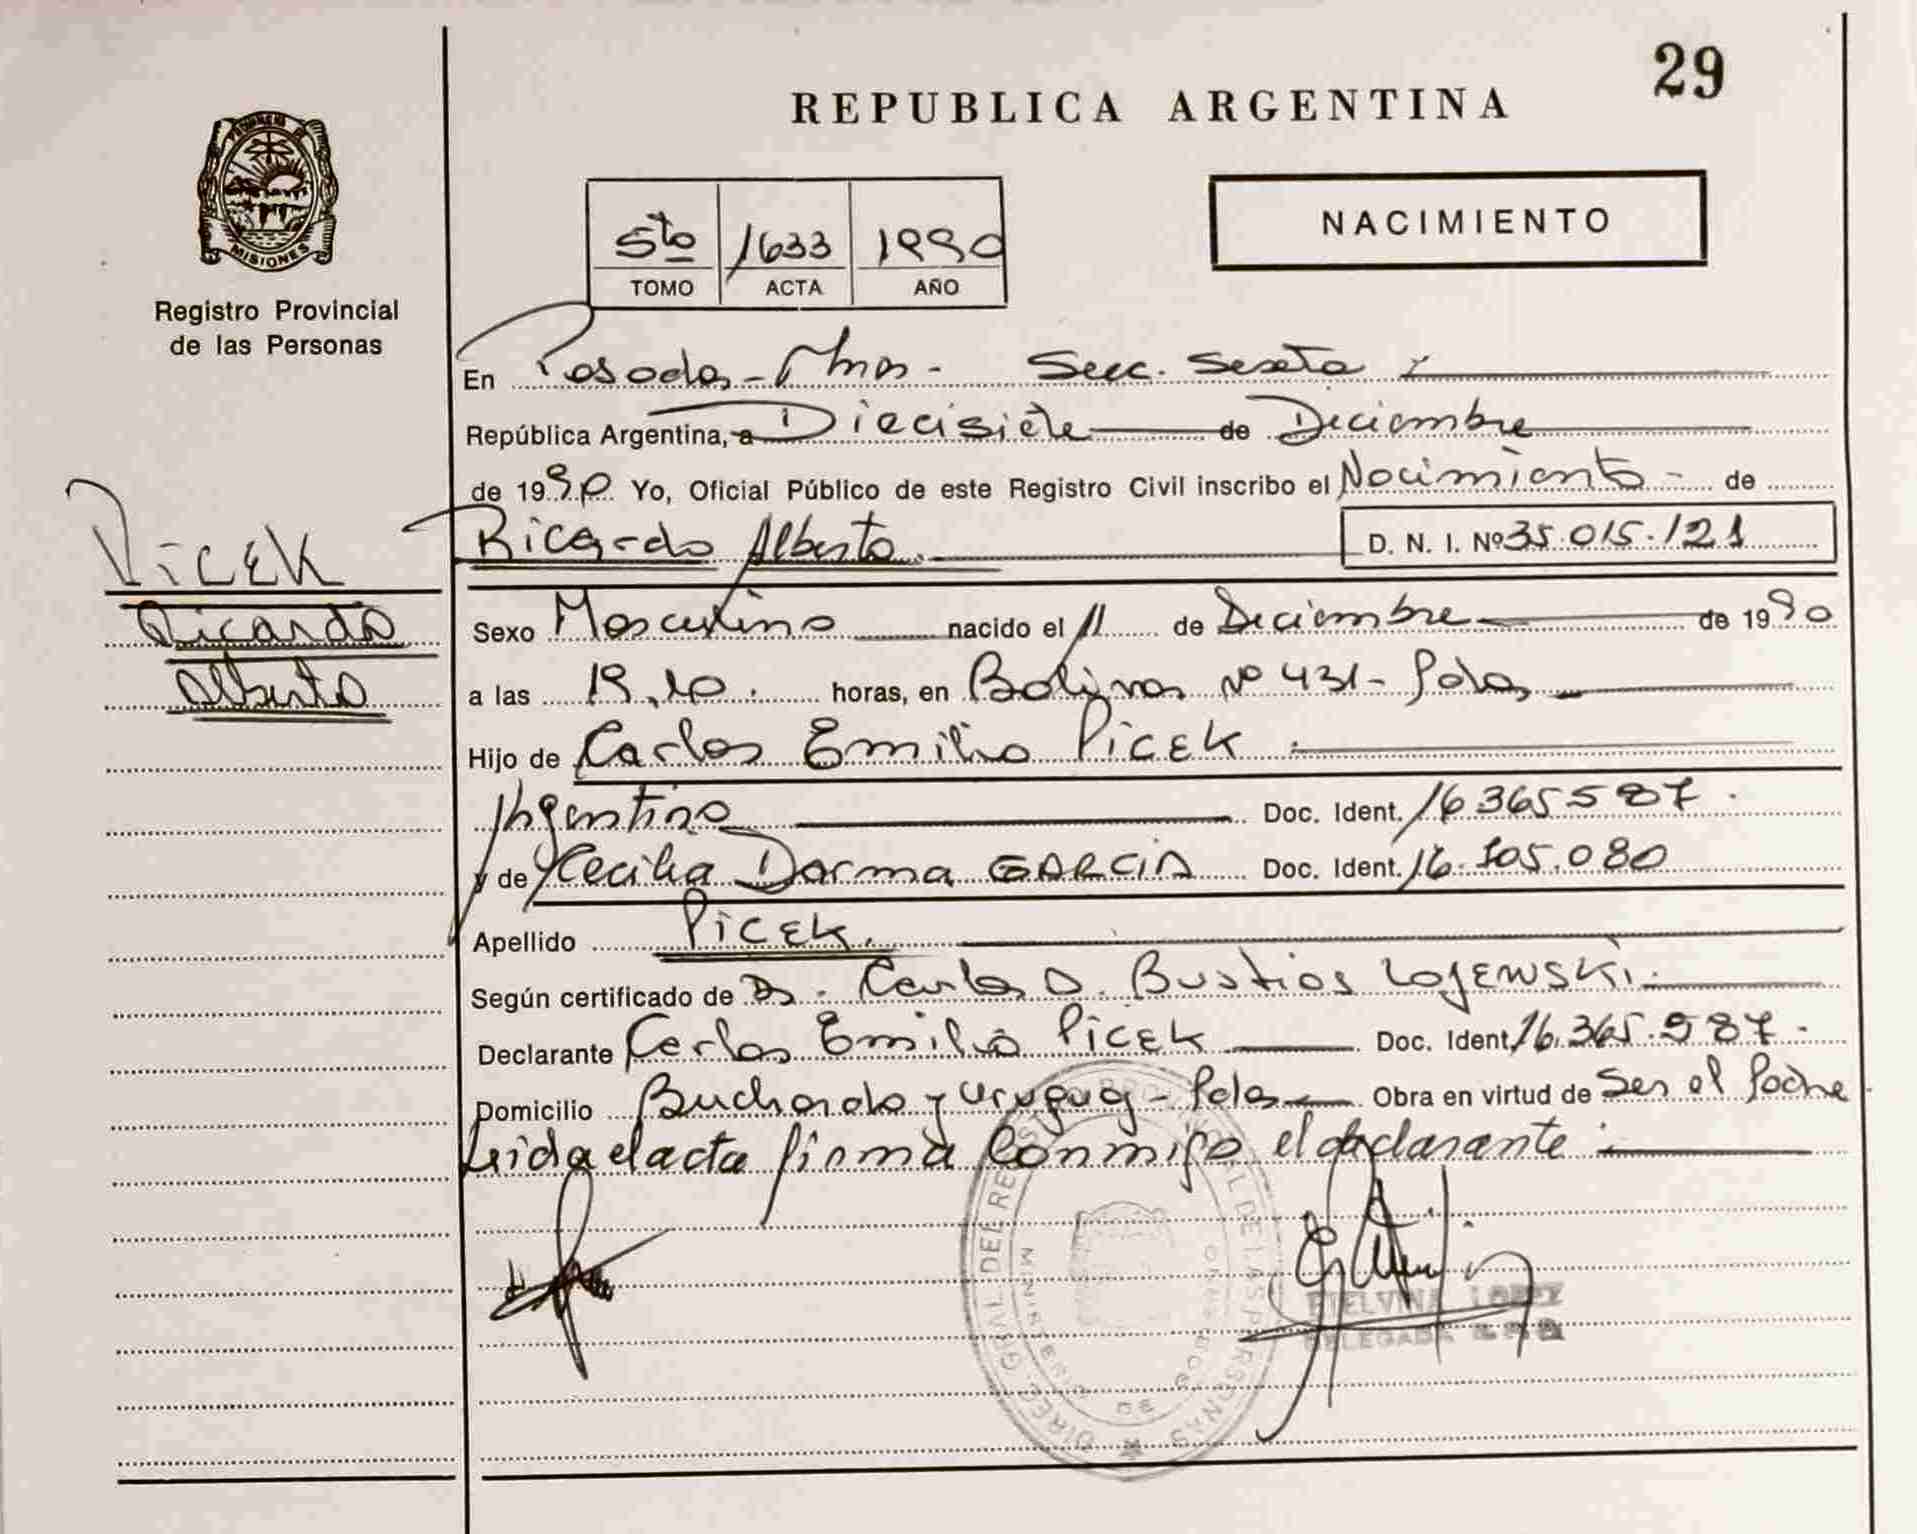 29
REPUBLICA ARGENTINA
NACIMIENTO
5to 1633 1990
TOMO ACTA AÑO
MISIONES
Registro Provincial
de las Personas
En Posadas - Mnes - Secc. Sexta
República Argentina, a Diecisiete de Diciembre
de 1990 Yo, Oficial Público de este Registro Civil inscribo el Nacimiento - de
Ricardo Alberto. D. N. I. Nº 35.015.121
PICEK
Ricardo
Alberto
Sexo Masculino nacido el 11 de Diciembre de 1990
a las 19,10. horas, en Bolívar Nº 431 - Pdas
Hijo de Carlos Emilio PICEK
Argentino Doc. Ident. 16365587.
y de Cecilia Dorma GARCIA Doc. Ident. 16.105.080
Apellido PICEK.
Según certificado de Dr. Carlos D. Bustios Lojewski.
Declarante Carlos Emilio PICEK Doc. Ident. 16.365.587.
Domicilio Buchardo y Uruguay - Pdas Obra en virtud de Ser el Padre
Leida el acta firma conmigo el declarante
DIREC. GRAL. DEL REGISTRO PROVINCIAL DE LAS PERSONAS
MINISTERIO DE GOBIERNO
ETELVINA LOPEZ
DELEGADA R.P.P.